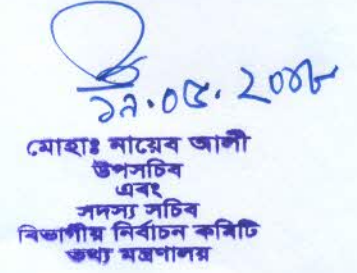 ১৯.০৫.২০১৮
মোহাঃ নায়েব আলী
উপসচিব
এবং
সদস্য সচিব
বিভাগীয় নির্বাচন কমিটি
তথ্য মন্ত্রণালয়